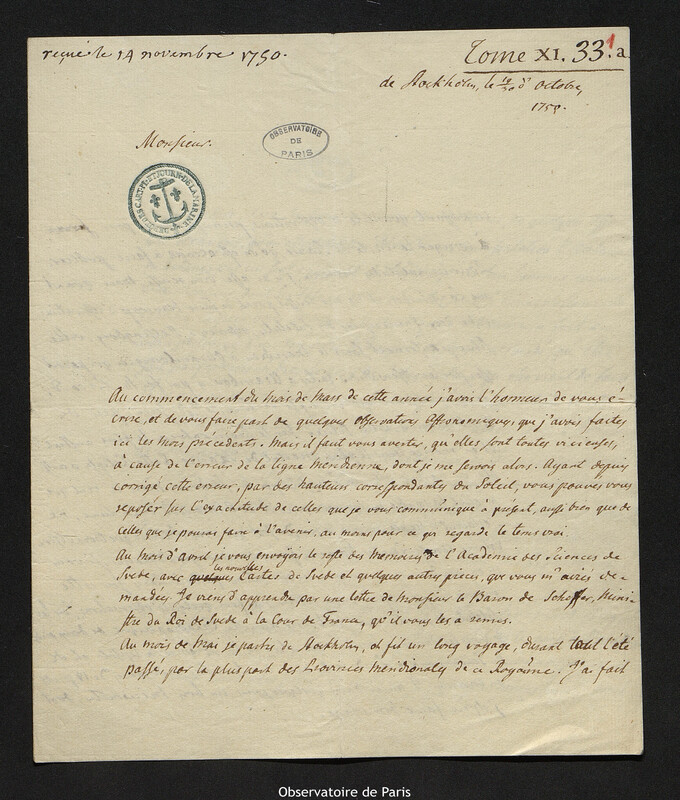 reçue le 14 novembre 1750.
Tome XI. 33. a
1
de Stockholm, le 19/30 8 Octobre,
1750.
Monsieur.
OBSERVATOIRE
DE
PARIS
DES CART. ET JOURN. DE LA MARINE
Au commencement du Mois de Mars de cette année j'avois l'honneur de vous é-
crire, et de vous faire part de quelques Observations Astronomiques, que j'avois faites
ici les mois précédents. Mais il faut vous averter, qu'elles sont toutes vicieuses,
à cause de l'erreur de la ligne Meridienne, dont je me servois alors. Ayant depuis
corrigé cette erreur, par des hauteurs correspondants du Soleil, vous pouvés vous
reposer sur l'exactitude de celles que je vous communique à présent, aussi bien que de
celles que je pourai faire à l'avenir, au moins pour ce qui regarde le tems vrai.
Au Mois d'avril je vous envoyois le reste des Memoires de l'Academie des Sciences de
Svede, avec quelques les nouvelles Cartes de Svede et quelques autres pieces, que vous m'aviés de-
mandées. Je viens d'apprendre par une lettre de Monsieur le Baron de Scheffer, Mini-
stre du Roi de Svede à la Cour de France, qu'il vous les a remis.
Au mois de Mai je partis de Stockholm, et fit un long voyage, durant tout l'été
passé, par la plus part des Provinces Meridionales de ce Royaume. J'ai fait
Observatoire de Paris